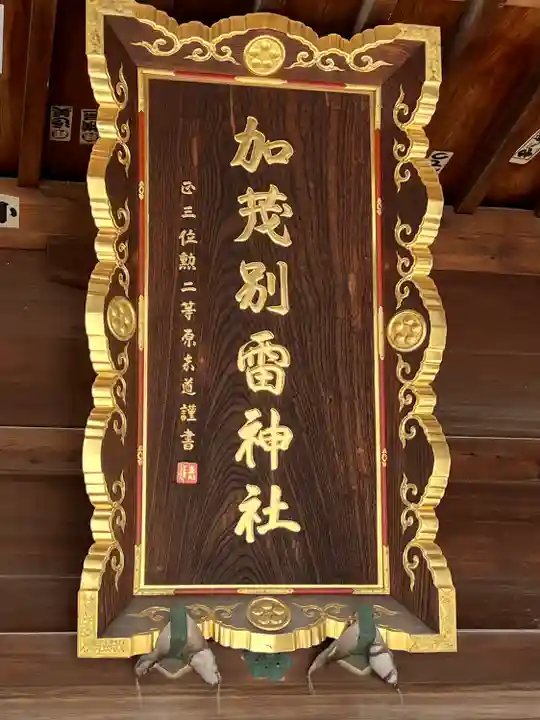 加茂別雷神社
正三位勲二等原嘉道謹書